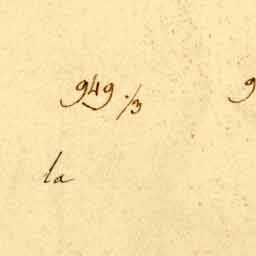 949 ./3 9
la